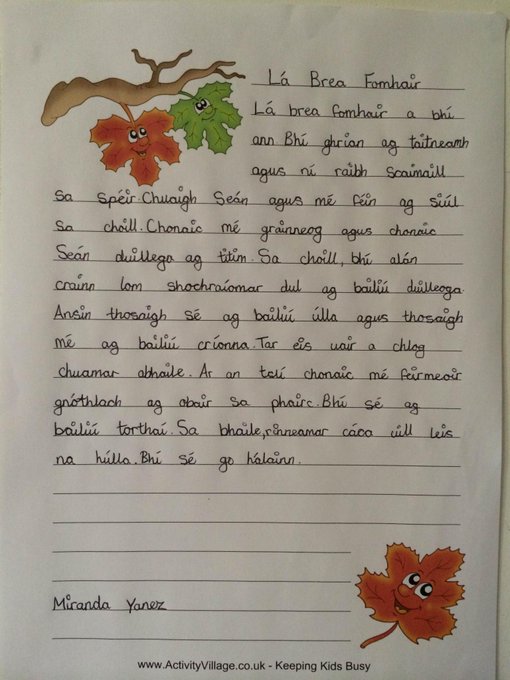 Lá Brea Fomhair
Lá brea fomhair a bhí
ann. Bhí ghrian ag taitneamh
agus ní raibh scaimaill
sa spéir. Chuaigh Seán agus mé féin ag siúl
sa choill. Chonaic mé gráinneog agus chonaic
Seán duillega ag titim. Sa choill, bhí alán
crainn lom shochraíomar dul ag bailiú duilleoga.
Ansin thosaigh sé ag bailiú úlla agus thosaigh
mé ag bailiú críonna. Tar eis uair a chlog
chuamar abhaile. Ar an tslí chonaic mé feirmeoir
gnóthlach ag obair sa phairc. Bhí sé ag
bailiú torthaí. Sa bhaile, rinneamar cáca úill leis
na húlla. Bhí sé go hálainn.
Miranda Yanez
www.ActivityVillage.co.uk - Keeping Kids Busy